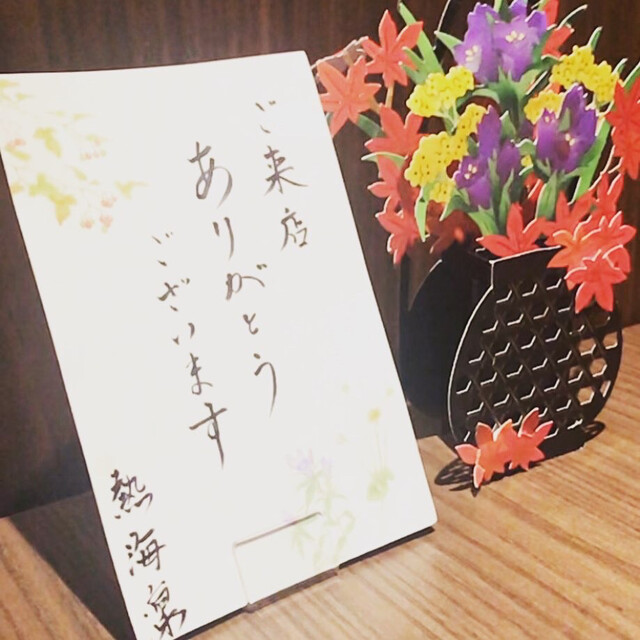 ご来店
ありがとう
ございます
熱海